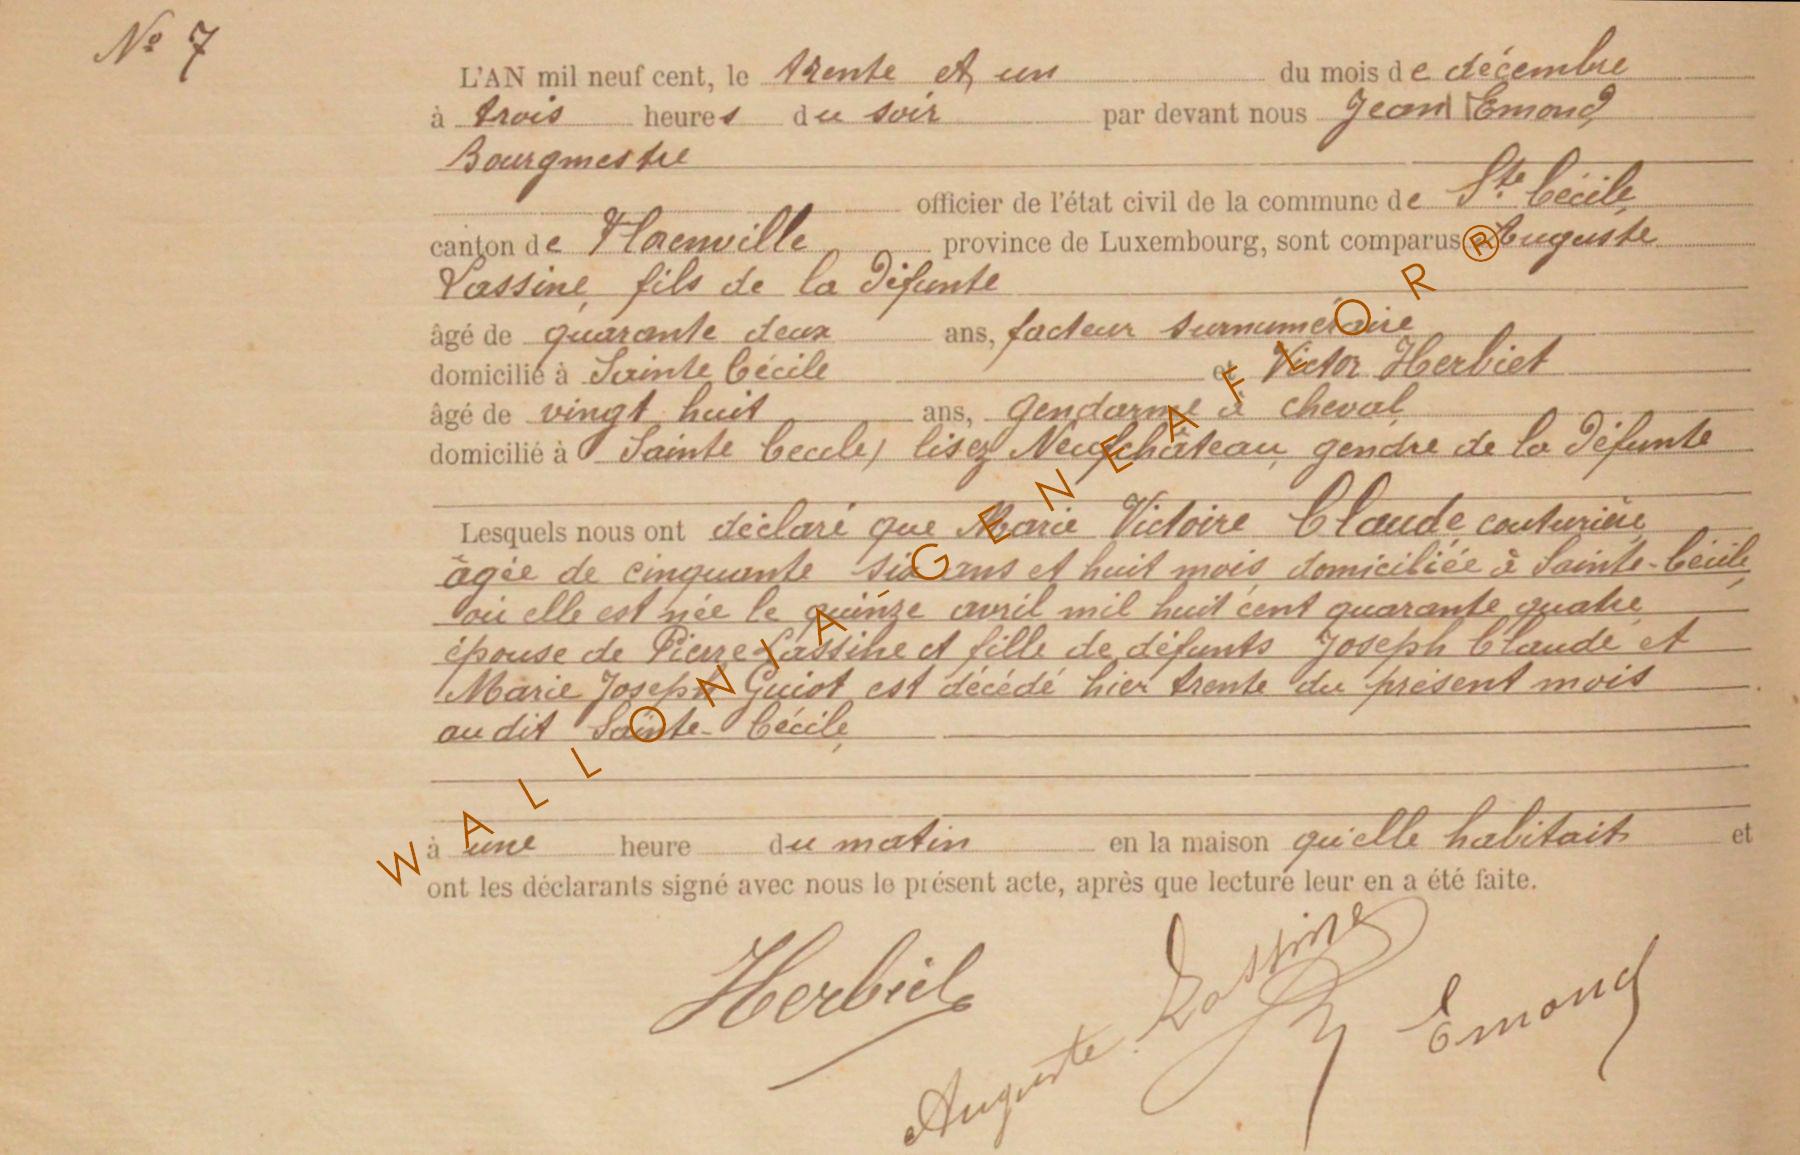 Nº 7
L'AN mil neuf cent, le trente et un du mois de décembre
à trois heures du soir par devant nous Jean Emond
Bourgmestre
officier de l'état civil de la commune de Ste Cécile
canton de Florenville province de Luxembourg, sont comparus Auguste
Lassine fils de la défunte
âgé de quarante deux ans, facteur surnuméraire
domicilié à Sainte Cécile et Victor Herbiet
âgé de vingt huit ans, gendarme à cheval
domicilié à Sainte Cecile) lisez Neufchâteau, gendre de la défunte
Lesquels nous ont déclaré que Marie Victoire Claude couturière
âgée de cinquante six ans et huit mois domiciliée à Sainte-Cécile
où elle est née le quinze avril mil huit cent quarante quatre
épouse de Pierre Lassine et fille de défunts Joseph Claude et
Marie Joseph Guiot est décédé hier trente du présent mois
au dit Sainte-Cécile
à une heure du matin en la maison qu'elle habitait et
ont les déclarants signé avec nous le présent acte, après que lecture leur en a été faite.
Herbiet
Auguste Lassine
Emond
WALLONIA-GENEAFLOR®